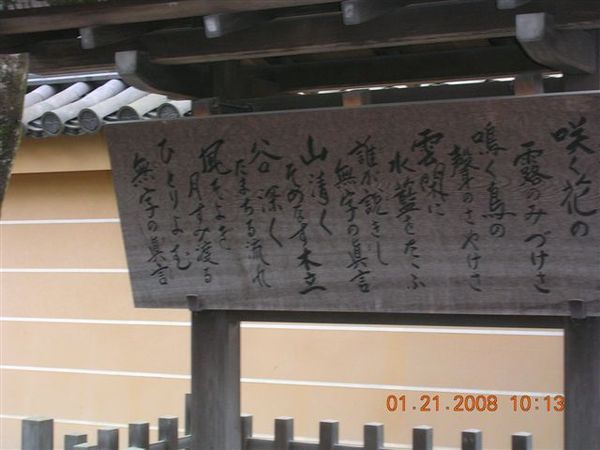 咲く花の
露のみづけさ
鳴く鳥の
聲のさやけさ
雲閑に
水藍をたゝふ
誰が説きし
無字の眞言
山清く
木立
谷深く
たまちる流れ
風そよぎ
月すみ渡る
ひとりよむ
無字の眞言
01.21.2008 10:13